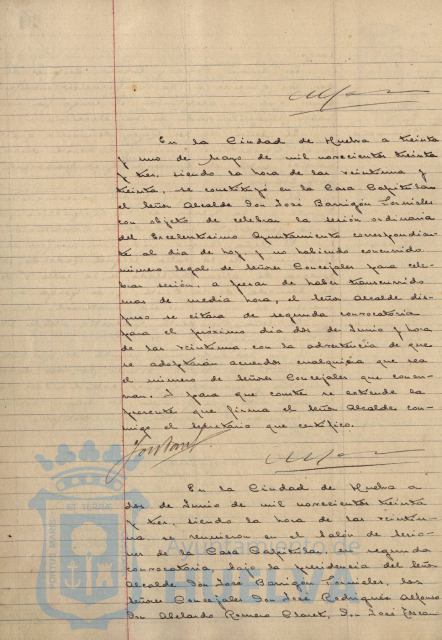 En la Ciudad de Huelva a treinta
y uno de Mayo de mil novecientos treinta
y tres, siendo la hora de las veintiuna y
treinta, se constituyó en la Casa Capitular
el Señor Alcalde Don José Barrigón Fornieles
con objeto de celebrar la sesión ordinaria
del Excelentísimo Ayuntamiento correspondien-
te al día de hoy y no habiendo concurrido
número legal de Señores Concejales para cele-
brar sesión, a pesar de haber transcurrido
mas de media hora, el Señor Alcalde dis-
puso se citara de segunda convocatoria
para el próximo día dos de Junio y hora
de las veintiuna con la advertencia de que
se adoptarán acuerdos cualquiera que sea
el número de Señores Concejales que concu-
rran. Y para que conste se extiende la
presente que firma el Señor Alcalde con-
migo el Secretario que certifico.
En la Ciudad de Huelva a
dos de Junio de mil novecientos treinta
y tres, siendo la hora de las veintiu-
na se reunieron en el Salón de Sesio-
nes de la Casa Capitular, en segunda
convocatoria, bajo la presidencia del Señor
Alcalde Don José Barrigón Fornieles, los
Señores Concejales Don José Rodríguez Alfonso
Don Abelardo Romero Claret, Don José
Ayuntamiento de
HUELVA